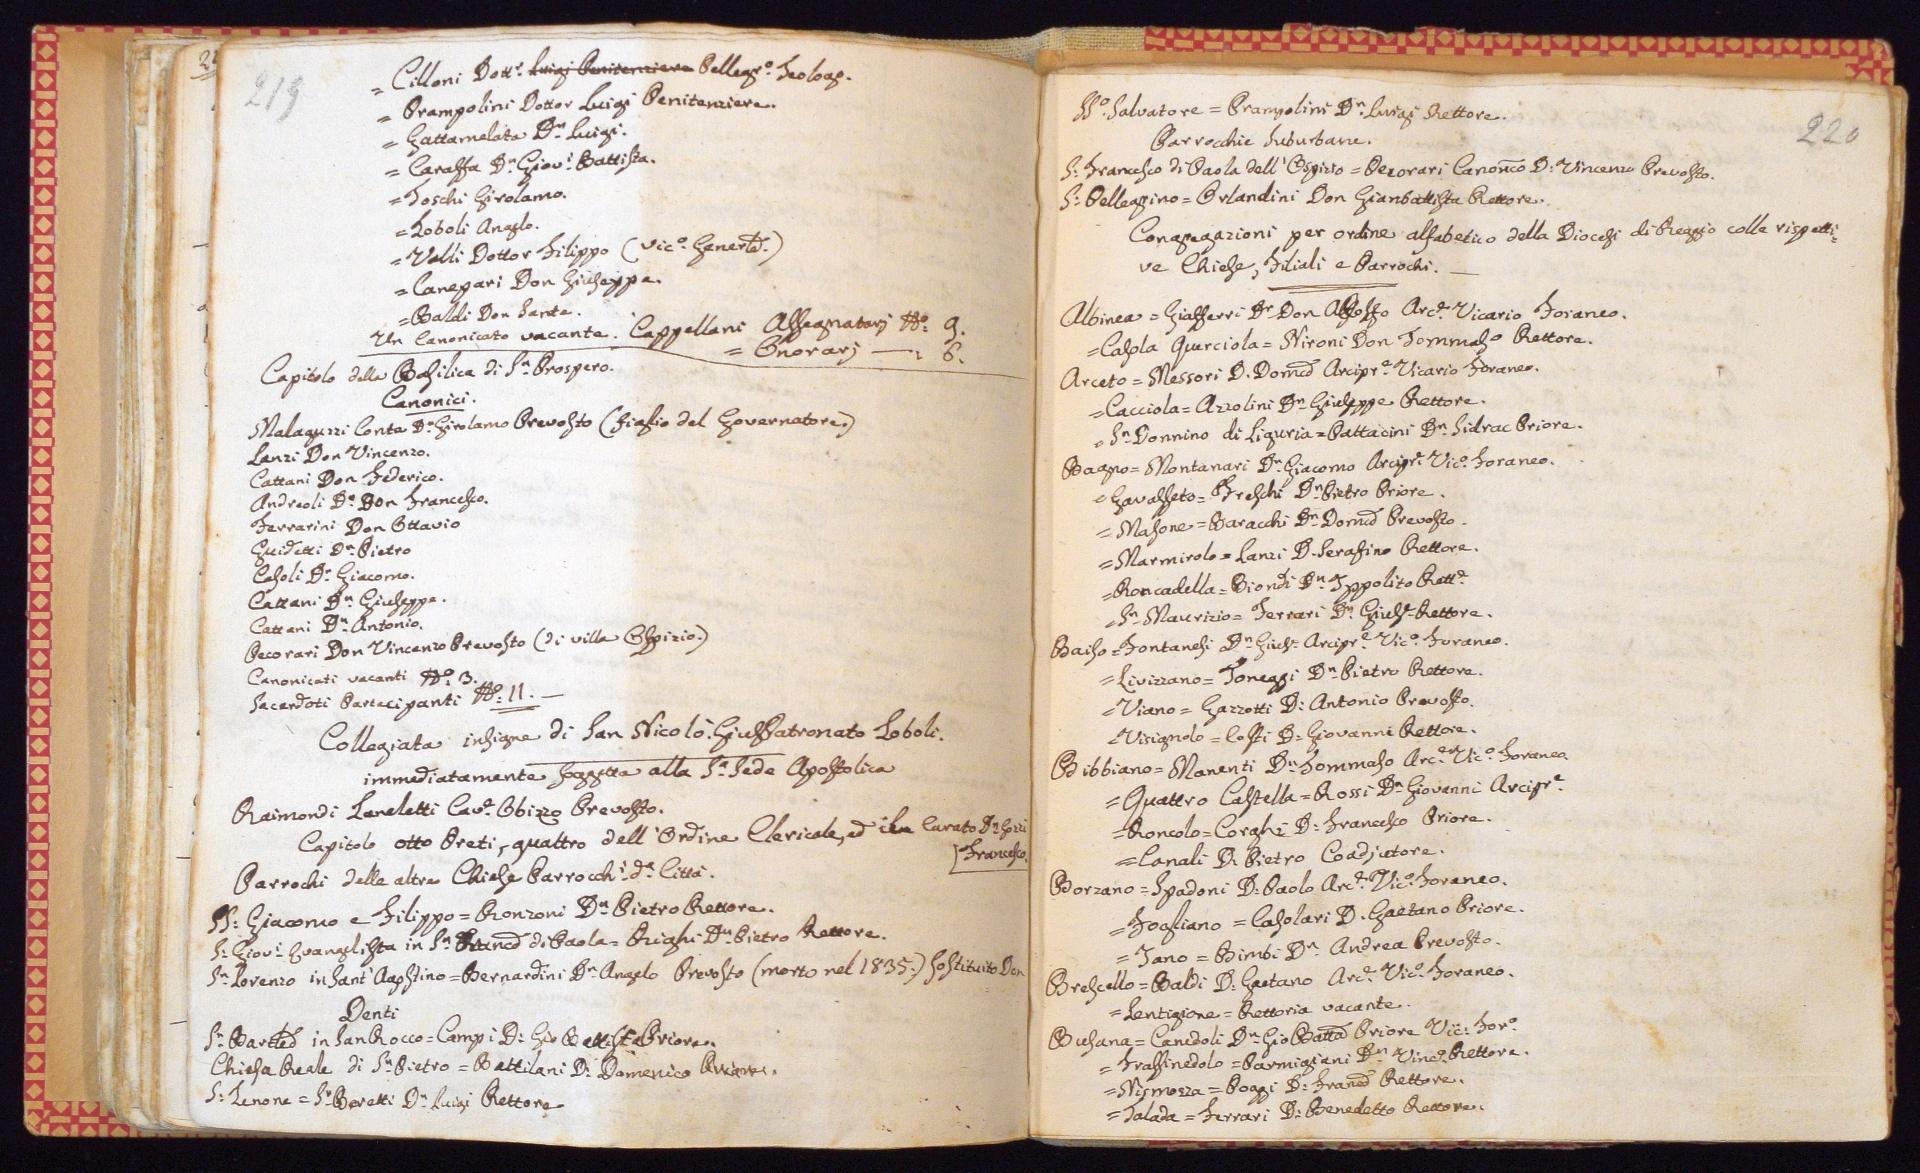 219
= Cilloni Dott.r Luigi Penitenziere Pellegr.o Teolog.
= Prampolini Dottor Luigi Penitenziere.
= Gattamelata D.n Luigi.
= Caraffa D.n Giov.i Battista.
= Toschi Girolamo.
= Toboli Angelo.
= Valli Dottor Filippo (Vic.o Generle.)
= Canepari Don Giuseppe.
= Baldi Don Sante.
Un Canonicato vacante. Cappellani Assegnatarj N.o: 9.
= Onorarj —: 6.
Capitolo della Basilica di S.n Prospero.
Canonici.
Malaguzzi Conte D.n Girolamo Prevosto (figlio del Governatore.)
Lanzi Don Vincenzo.
Cattani Don Federico.
Andreoli D.r Don Francesco.
Ferrarini Don Ottavio
Guidetti D.n Pietro
Casoli D.n Giacomo.
Cattani D.n Giuseppe.
Cattani D.n Antonio.
Pecorari Don Vincenzo Prevosto (di villa Ospizio.)
Canonicati vacanti N.o: 3.
Sacerdoti Partecipanti N.o: 11. —
Collegiata insigne di San Nicolò. GiusPatronato Toboli.
immediatamente soggetta alla S.a Sede Apostolica
Raimondi Laneletti Cav.e Obizzo Prevosto.
Capitolo otto Preti, quattro dell'Ordine Clericale, ed il Curato D.n Gozzi
[Francesco.
Parrochi delle altre Chiese Parrocch.i d.a Città.
SS: Giacomo e Filippo = Ronzoni D.n Pietro Rettore.
S: Giov.i Evangelista in S.n Franc.o di Paola = Righi D.n Pietro Rettore.
S.n Lorenzo in Sant'Agostino = Bernardini D.n Angelo Prevosto (morto nel 1835:) sostituito Don
Denti
S.n Bart.o in San Rocco = Campi D: Gio Battista Priore.
Chiesa Reale di S.n Pietro = Battilani D: Domenico Priore.
S: Zenone = Peretti D.n Luigi Rettore
220
SS.o Salvatore = Prampolini D.n Luigi Rettore.
Parrocchie Suburbane.
S: Francesco di Paola dell'Ospizio = Pecorari Canonco D: Vincenzo Prevosto.
S: Pellegrino = Orlandini Don Gianbattista Rettore.
Congregazioni per ordine alfabetico della Diocesi di Reggio colle rispetti=
ve Chiese, Filiali e Parrochi. —
Albinea = Giafferri D.r Don Alfonso Arc.e Vicario Foraneo.
= Casola Querciola = Nironi Don Tommaso Rettore.
Arceto = Messori D. Domco Arcipr.e Vicario Foraneo.
= Cacciola = Azzolini D.n Giuseppe Rettore.
= S.n Donnino di Liguria = Pattacini D.n Sidrac Priore.
Bagno = Montanari D.n Giacomo Arcipr.e Vic.o Foraneo.
= Gavasseto = Freschi D.n Pietro Priore.
= Masone = Baracchi D.n Domco Prevosto.
= Marmirolo = Lanzi D. Serafino Rettore.
= Roncadella = Biondi D.n Ippolito Rett.e
= S.n Maurizio = Ferrari D.n Gius.e Rettore.
Baiso = Fontanesi D.n Gius.e Arcipr.e Vic.o Foraneo.
= Livizzano = Toneggi D.n Pietro Rettore.
= Viano = Gazzotti D: Antonio Prevosto.
= Visignolo = Costi D: Giovanni Rettore.
Bibbiano = Manenti D.n Tommaso Arc.e Vic.o Foraneo.
= Quattro Castella = Rossi D.n Giovanni Arcipr.e
= Roncolo = Corghi D: Francesco Priore.
= Canali D. Pietro Coadjutore.
Borzano = Spadoni D: Paolo Arc.e Vic.o Foraneo.
= Fogliano = Casolari D. Gaetano Priore.
= Jano = Bimbi D.n Andrea Prevosto.
Brescello = Baldi D: Gaetano Arc.e Vic.o Foraneo.
= Lentigione = Rettoria vacante.
Busana = Canedoli D.n Gio Batta Priore Vic: For.o
= Frassinedolo = Parmigiani D.n Vinc.o Rettore.
= Nismozza = Poggi D: Franco Rettore.
= Talada = Ferrari D: Benedetto Rettore.